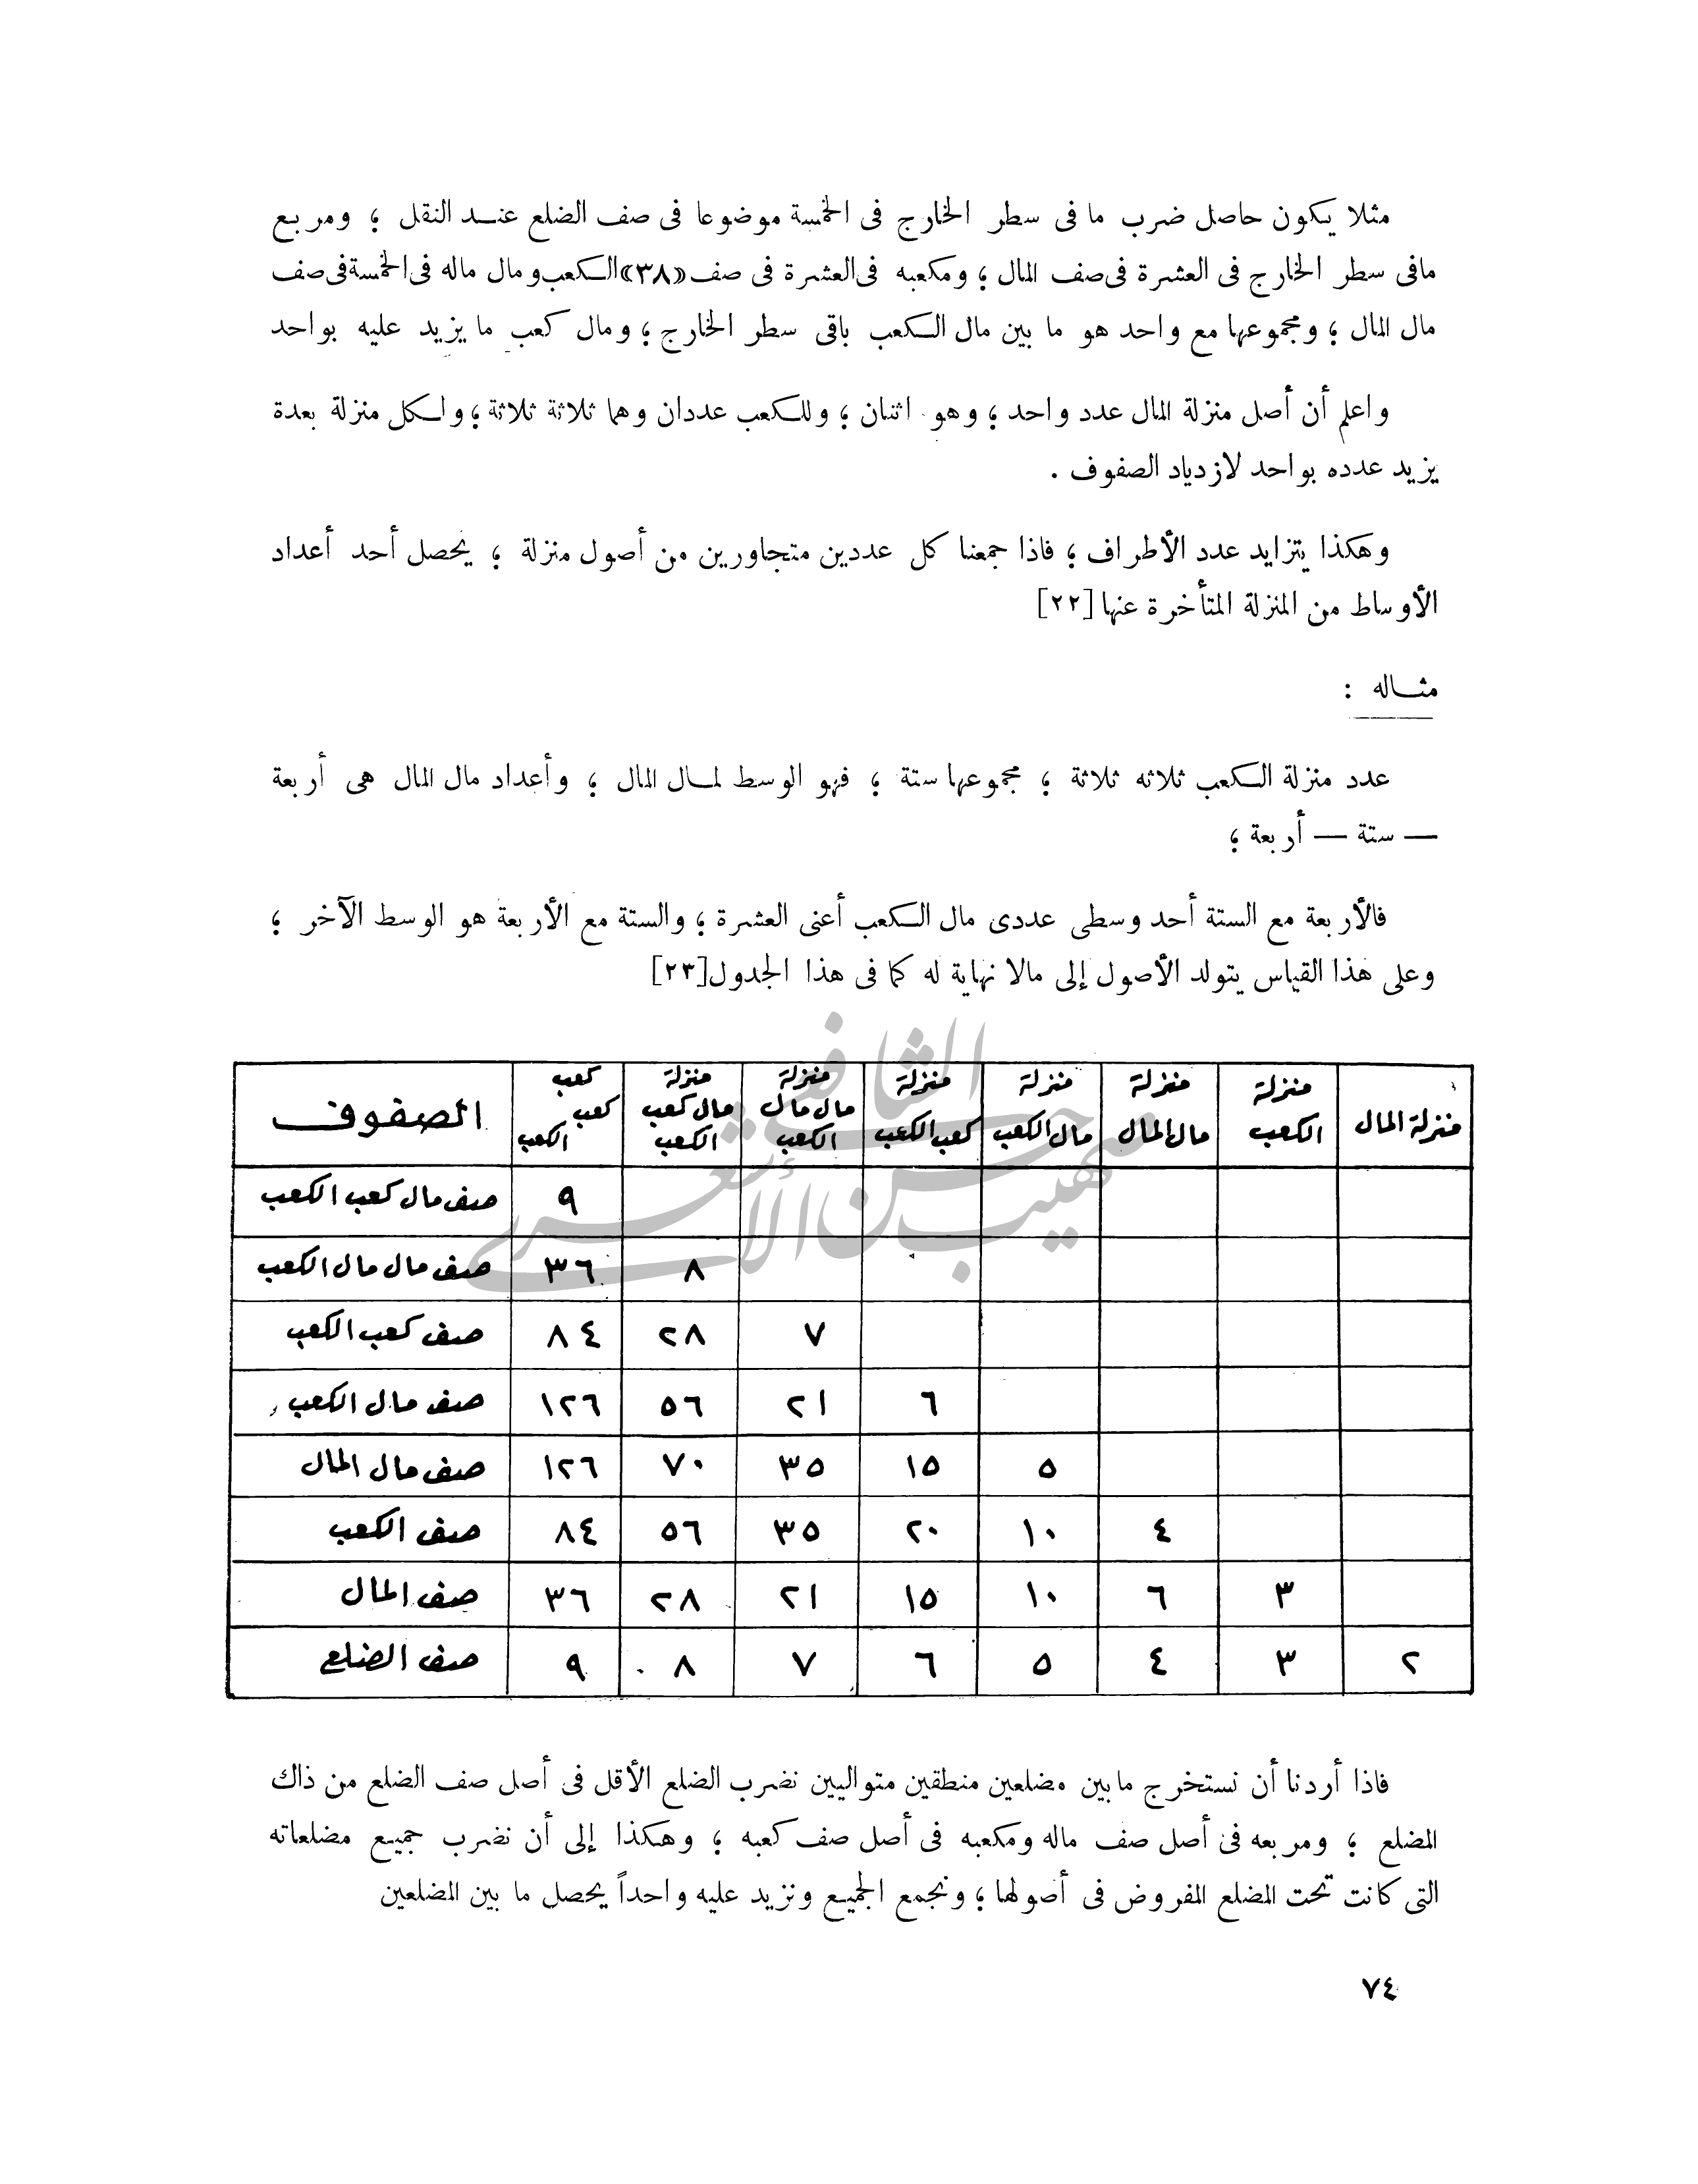 مثلا يكون حاصل ضرب ما فى سطر الخارج فى الخمسة موضوعا فى صف الضلع عنــد النقل ؛ ومربع
مافى سطر الخارج فى العشرة فى صف المال ؛ ومكعبه فى العشرة فى صف «٣٨» الكعب ومال ماله فى الخمسة فى صف
مال المال ؛ ومجموعها مع واحد هو ما بين مال الكعب باقى سطر الخارج ؛ ومال كعب ما يزيد عليه بواحد
واعلم أن أصل منزلة المال عدد واحد ؛ وهو اثنان ؛ وللكعب عددان وهما ثلاثة ثلاثة ؛ ولكل منزلة بعدة
يزيد عدده بواحد لازدياد الصفوف .
وهكذا يتزايد عدد الأطراف ؛ فاذا جمعنا كل عددين متجاورين من أصول منزلة ؛ يحصل أحد أعداد
الأوساط من المنزلة المتأخرة عنها [٢٢]
مثــاله :
عدد منزلة الكعب ثلاثه ثلاثة ؛ مجموعها ستة ؛ فهو الوسط لمــال المال ؛ وأعداد مال المال هى أربعة
— ستة — أربعة ؛
فالأربعة مع الستة أحد وسطى عددى مال الكعب أعنى العشرة ؛ والستة مع الأربعة هو الوسط الآخر ؛
وعلى هذا القياس يتولد الأصول إلى مالا نهاية له كما فى هذا الجدول [٢٣]
منزلة المال | منزلة الكعب | منزلة مال المال | منزلة مال الكعب | منزلة كعب الكعب | منزلة مال مال الكعب | منزلة مال كعب الكعب | كعب كعب الكعب | الصفوف
٩ صف مال كعب الكعب
٨ ٣٦ صف مال مال الكعب
٧ ٢٨ ٨٤ صف كعب الكعب
٦ ٢١ ٥٦ ١٢٦ صف مال الكعب
٥ ١٥ ٣٥ ٧٠ ١٢٦ صف مال المال
٤ ١٠ ٢٠ ٣٥ ٥٦ ٨٤ صف الكعب
٣ ٦ ١٠ ١٥ ٢١ ٢٨ ٣٦ صف المال
٢ ٣ ٤ ٥ ٦ ٧ ٨ ٩ صف الضلع
فاذا أردنا أن نستخرج مابين مضلعين منطقين متواليين نضرب الضلع الأقل فى أصل صف الضلع من ذاك
المضلع ؛ ومربعه فى أصل صف ماله ومكعبه فى أصل صف كعبه ؛ وهكذا إلى أن نضرب جميع مضلعاته
التى كانت تحت المضلع المفروض فى أصولها ؛ ونجمع الجميع ونزيد عليه واحداً يحصل ما بين المضلعين
٧٤